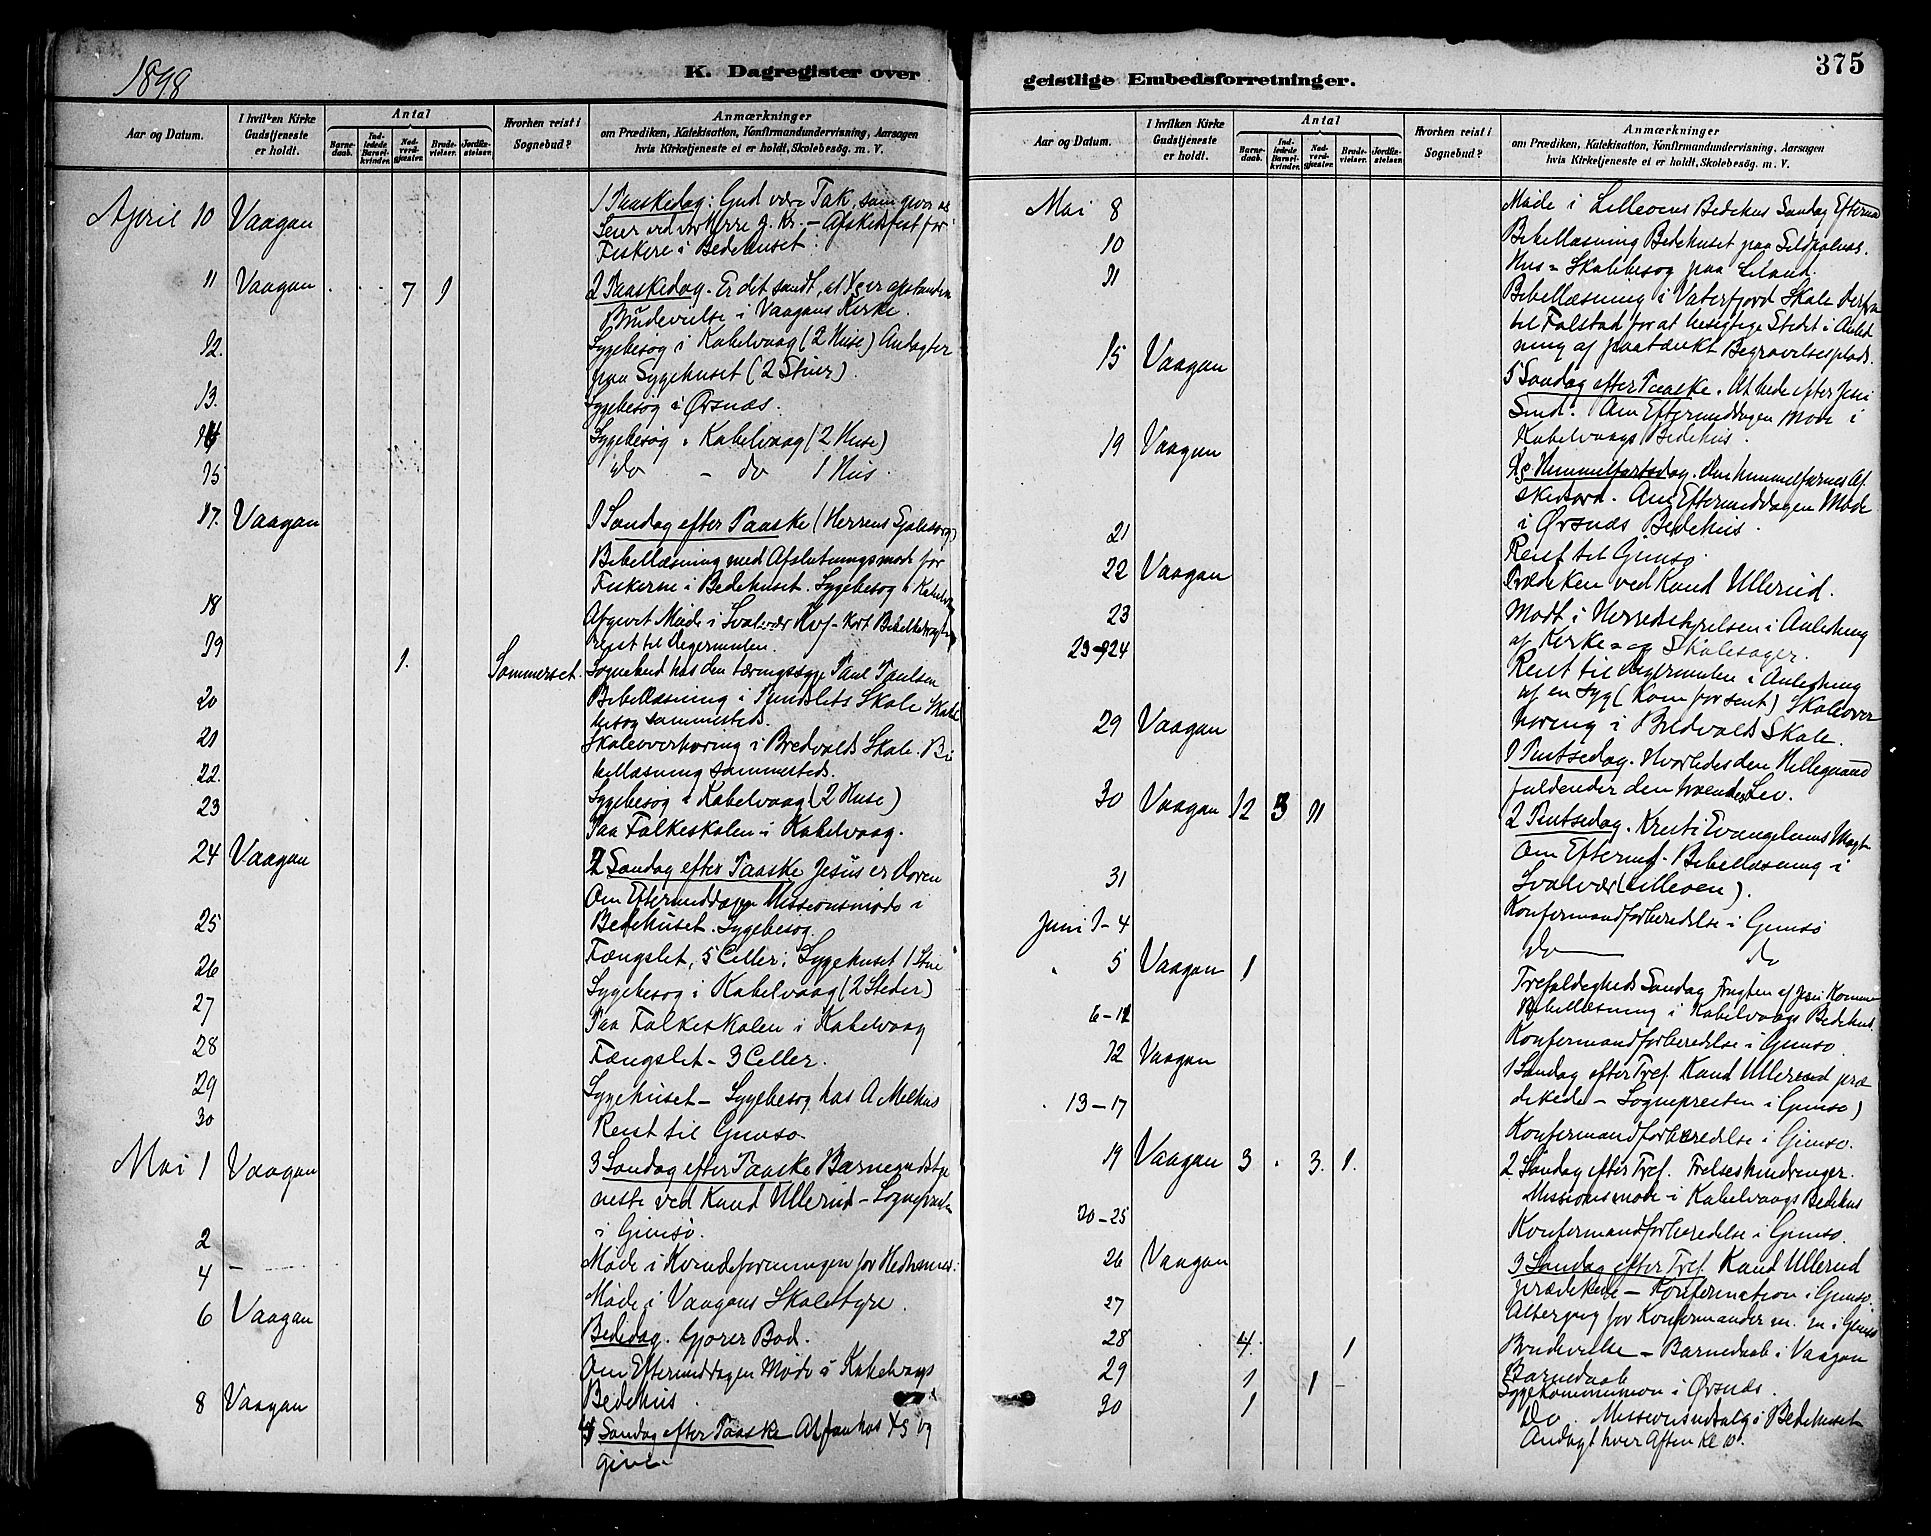 1898
K. Dagregister over
Aar og Datum.
I hvilken Kirke Gudstjeneste er holdt.
Antal
Barnedaab.
Indledede Barselkvinder.
Nadverdgjæster.
Brudevielser.
Jordfæstelser.
Hvorhen reist i Sognebud?
Anmærkninger
om Prædiken, Katekisation, Konfirmandundervisning, Aarsagen
hvis Kirketjeneste ei er holdt, Skolebesøg. m. V.
April 10 Vaagan 1 Paaskedag: Gud være Tak, som giver os
Seier ved vor Herre J. Kr. - Afskedsfest for
Fiskere i Bedehuset.
11 Vaagan 7 1 2 Paaskedag. Er det sandt, at Xs er opstanden
Brudevielse i Vaagans Kirke.
12. Sygebesøg i Kabelvaag (2 Huse) Andagter
paa Sygehuset (2 Stuer).
13. Sygebesøg i Ørsnæs.
14 Sygebesøg i Kabelvaag (2 Huse)
15 do - do 1 Hus.
17. Vaagan 1 Søndag efter Paaske (Herrens Sjælesorg)
Bibellæsning med Afslutningsmøde for
Fiskerne i Bedehuset. Sygebesøg i Kabelvaag
18 Møde i Svolvær
reist til Digermulen.
19 1. Sommerset. Sognebud hos den tæringssyge Paul Paulsen
20 Bibellæsning i Skole Skole
besøg sammesteds.
21 Skoleoverhøring i Bredvolds Skole. Bi
22. bellæsning sammesteds.
Sygebesøg i Kabelvaag (2 Huse)
23 Paa Folkeskolen i Kabelvaag.
24 Vaagan 2 Søndag efter Paaske Jesus er Døren
Om Eftermiddagen Missionsmøde i
25 Bedehuset. Sygebesøg.
Fængslet, 5 Celler; Sygehuset 1 Stue
26 Sygebesøg i Kabelvaag (2 Steder)
27 Paa Folkeskolen i Kabelvaag
28 Fængslet - 3 Celler.
29 Sygehuset - Sygebesøg hos A Melhus
30 Reist til Gimsø
Mai 1 Vaagan 3 Søndag efter Paaske Børnegudstje
neste ved Kand Ullerud - Sognepresten
i Gimsø.
2 Møde i Kvindeforeningen for
4 - Møde i Vaagans Skolestyre.
6 Vaagan Bededag. Gjører Bod.
Om Eftermiddagen Møde i Kabelvaags
Bedehus.
8 Vaagan 4 Søndag efter Paaske At faa hos Xs og
give

geistlige Embedsforretninger.
375
Aar og Datum.
I hvilken Kirke Gudstjeneste er holdt.
Antal
Barnedaab.
Indledede Barselkvinder.
Nadverdgjæster.
Brudevielser.
Jordfæstelser.
Hvorhen reist i Sognebud?
Anmærkninger
om Prædiken, Katekisation, Konfirmandundervisning, Aarsagen
hvis Kirketjeneste ei er holdt, Skolebesøg. m. V.
Mai 8 Møde i Lilleøens Bedehus Søndag Efterm
10 Bibellæsning Bedehuset paa
Hus = Skolebesøg paa Liland.
11 Bibellæsning i Vaterfjord Skole Derfra
til Falstad for at besigtige Stedet i Anled
ning af paatænkt Begravelsesplads.
15 Vaagan 5 Søndag efter Paaske. At bede efter Jesu
Sind. Om Eftermiddagen Møde i
Kabelvaags Bedehus.
19 Vaagan Xs Himmelfartsdag. Den himmelfarnes Af
skedsord. Om Eftermiddagen Møde
i Ørsnæs Bedehus.
21 Reist til Gimsø.
22 Vaagan Prædiken ved Kand Ullerud.
23 Mødt i Herredsstyrelsen i Anledning
af Kirke- og Skolesager.
23-24 Reist til Digermulen i Anledning
af en Syg (Kom for sent) Skoleover
høring i Bredvolds Skole.
29 Vaagan 1 Pintsedag. Hvorledes den Helligaand
fuldender den troendes Lev.
30 Vaagan 12 3 11 2 Pintsedag. Kristi Evangeliums Magt
Om Efterm. Bibellæsning i
Svolvær (Lilleøen).
31 Konfirmandforberedelse i Gimsø
Juni 1-4 do do
5 Vaagan 1 Trefoldigheds Søndag Frugten af Jesu Komme
Bibellæsning i Kabelvaags Bedehus.
6-11 Konfirmandforberedelse i Gimsø
12 Vaagan 1 Søndag efter Tref. Kand Ullerud præ
dikede - Sognepresten i Gimsø)
13-17 Konfirmandforberedelse i Gimsø.
19 Vaagan 3 3. 1. 2 Søndag efter Tref. Frelseshindringer.
Missionsmøde i Kabelvaags Bedehus
20-25 Konfirmandforberedelse i Gimsø.
26 Vaagan 3 Søndag efter Tref. Kand Ullerud
prædikede - Konfirmation i Gimsø.
27 Altergang for Konfirmander m. m i Gimsø
28 4. 1 Brudevielse - Barnedaab i Vaagan
29 1 1 - Barnedaab
Sygekommunion i Ørsnæs.
30 1 Do. Missionsudsalg i Bedehuset
Andagt hver Aften Kl